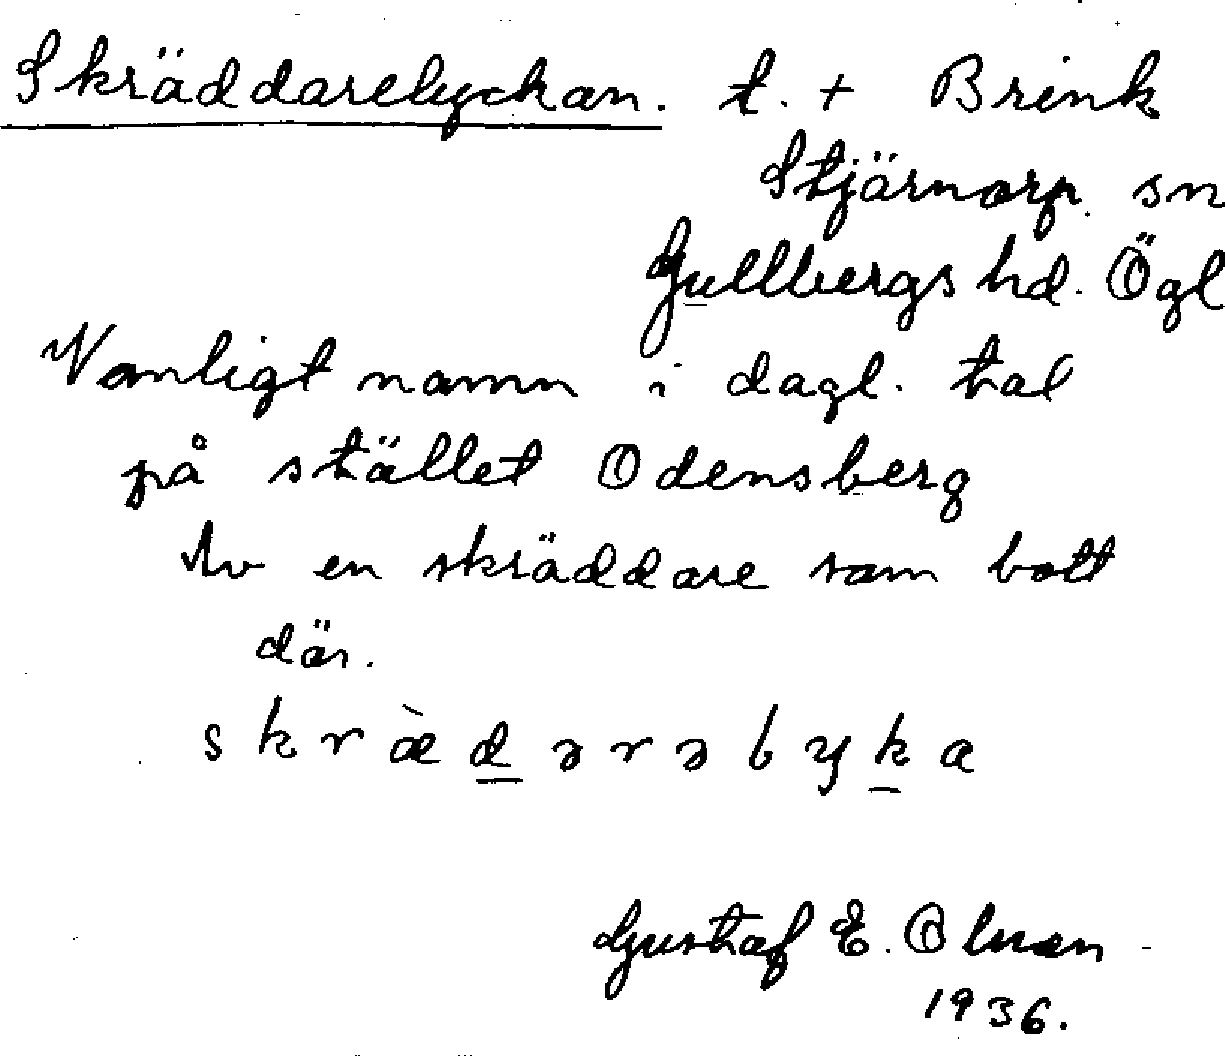 Skräddarelyckan. t. + Brink
Stjärnorp. sn
Gullbergs hd. Ögl
Vanligt namn i dagl. tal
på stället Odensberg
Av en skräddare som bott
där.
skræ̀d̲ərəlyk̲a
Gustaf E. Olsson
1936.